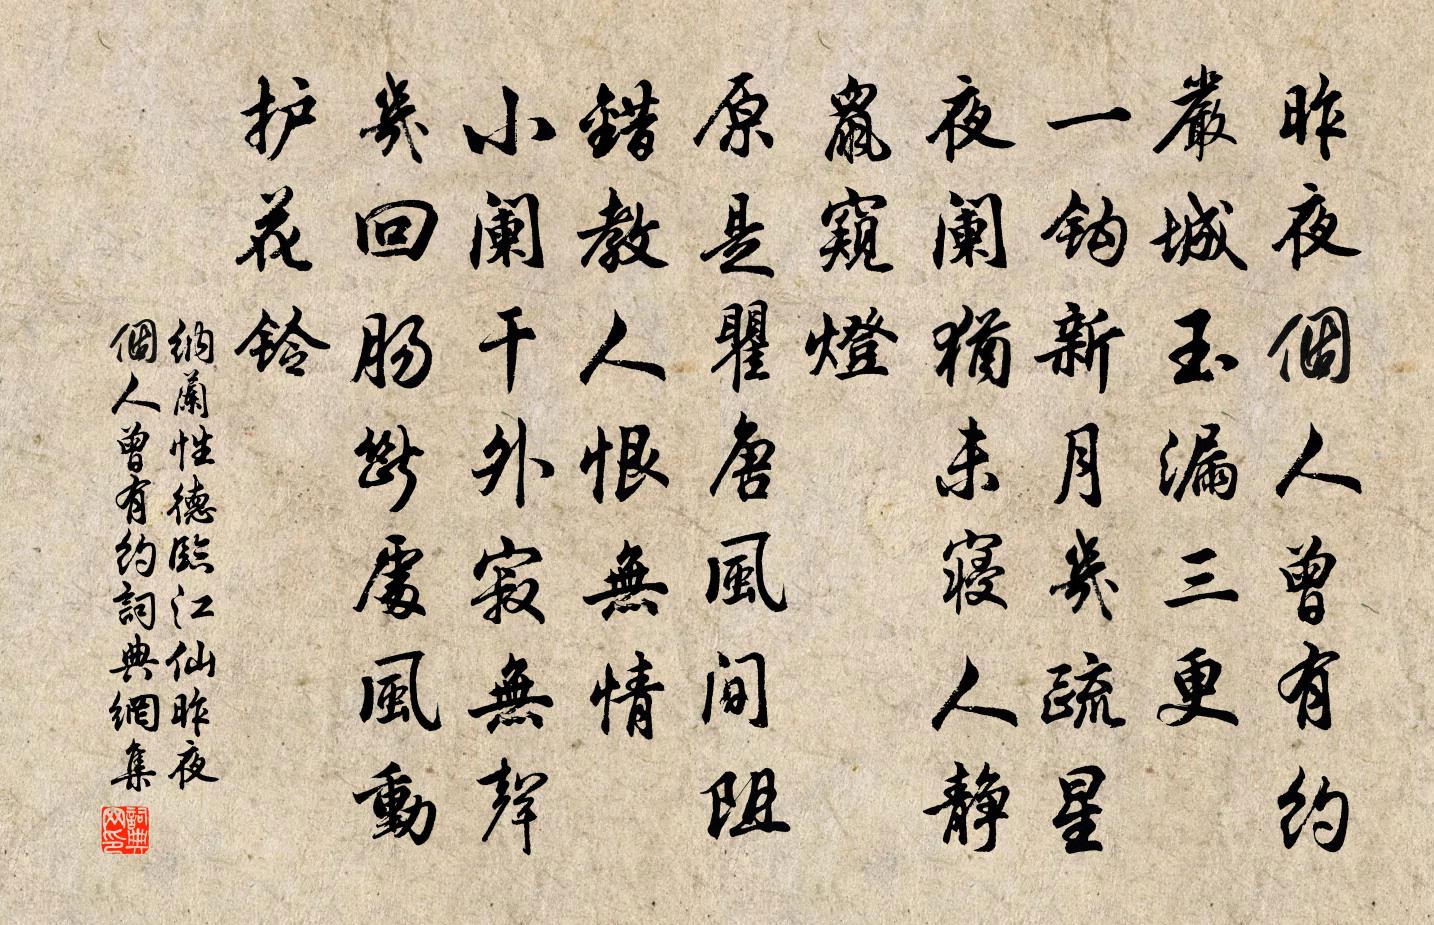 昨夜個人曾有約
嚴城玉漏三更
一鈎新月幾疏星
夜阑猶未寢人靜
鼠窺燈
原是瞿唐風间阻
錯教人恨無情
小阑干外寂無聲
幾回肠斷處風動
护花鈴
納蘭性德臨江仙昨夜
個人曾有約詞典網集
詞典
网印